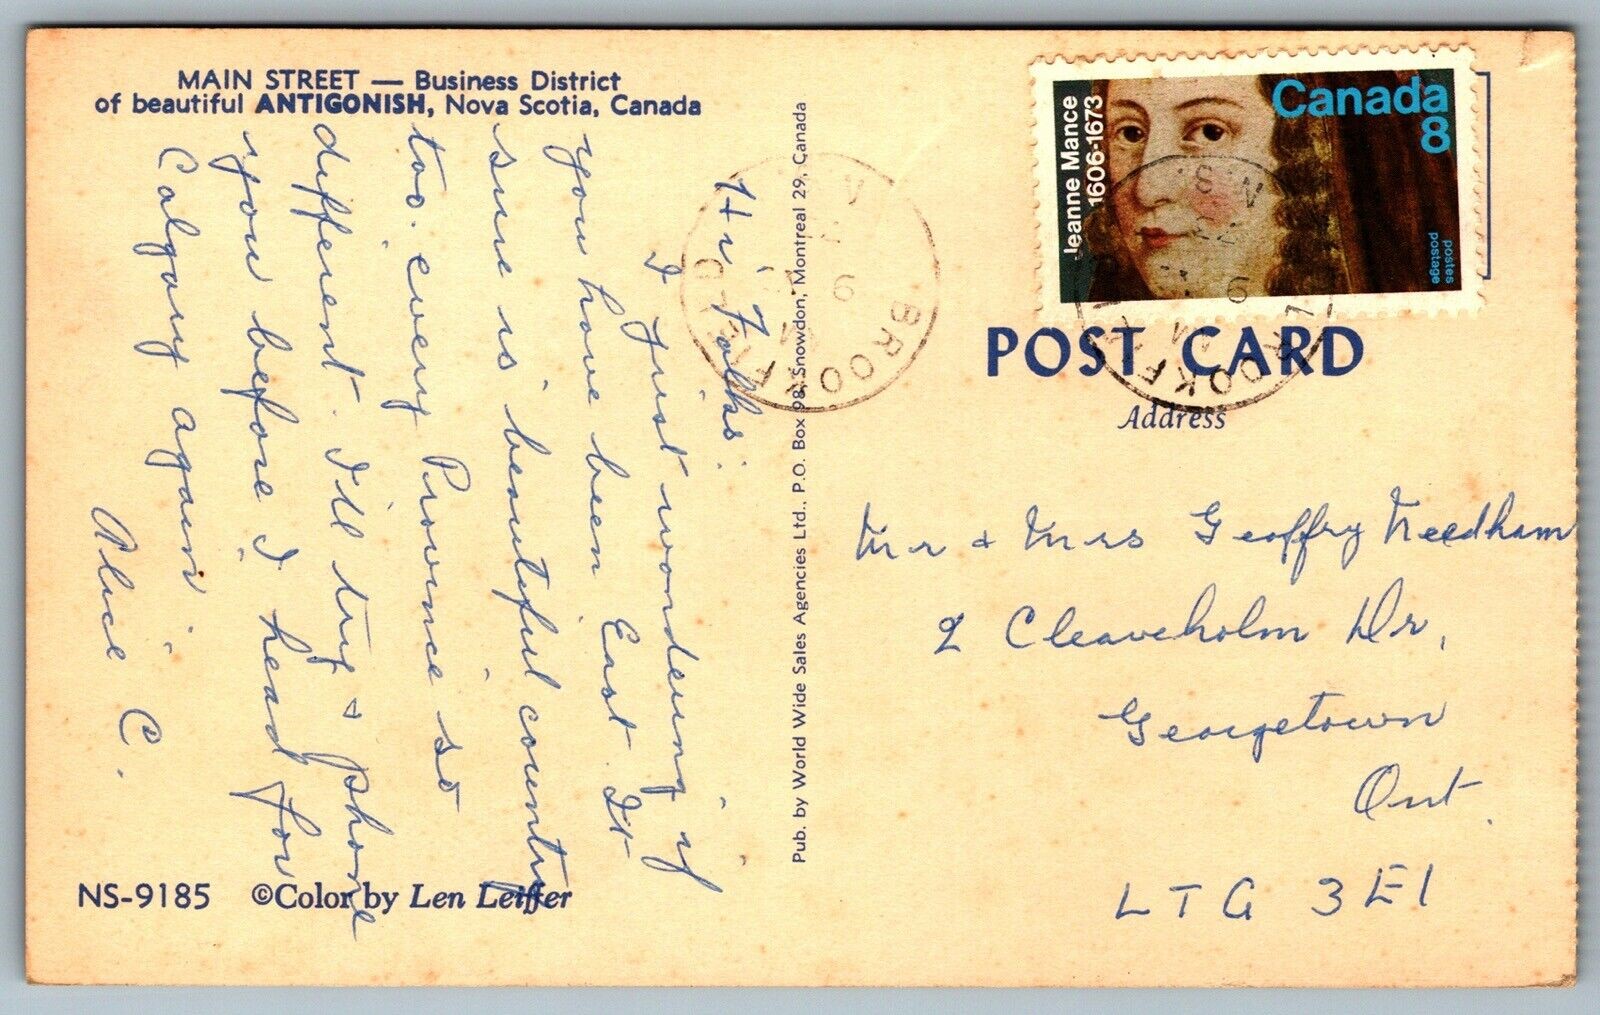 MAIN STREET — Business District
of beautiful ANTIGONISH, Nova Scotia, Canada
Hi Folks:
I just wondering if
you have been East. It
sure is beautiful country
too. every Province so
different. I'll try & phone
you before I head for
Calgary again.
Alice C.
NS-9185 ©Color by Len Leiffer
Pub. by World Wide Sales Agencies Ltd., P.O. Box 98, Snowdon, Montreal 29, Canada
BROOKFIELD
N.S.
Jeanne Mance
1606-1673
Canada
8
postes
postage
BROOKFIELD
POST CARD
Address
Mr & Mrs Geoffry Needham
2 Cleaveholm Dr,
Georgetown
Ont.
LTG 3E1